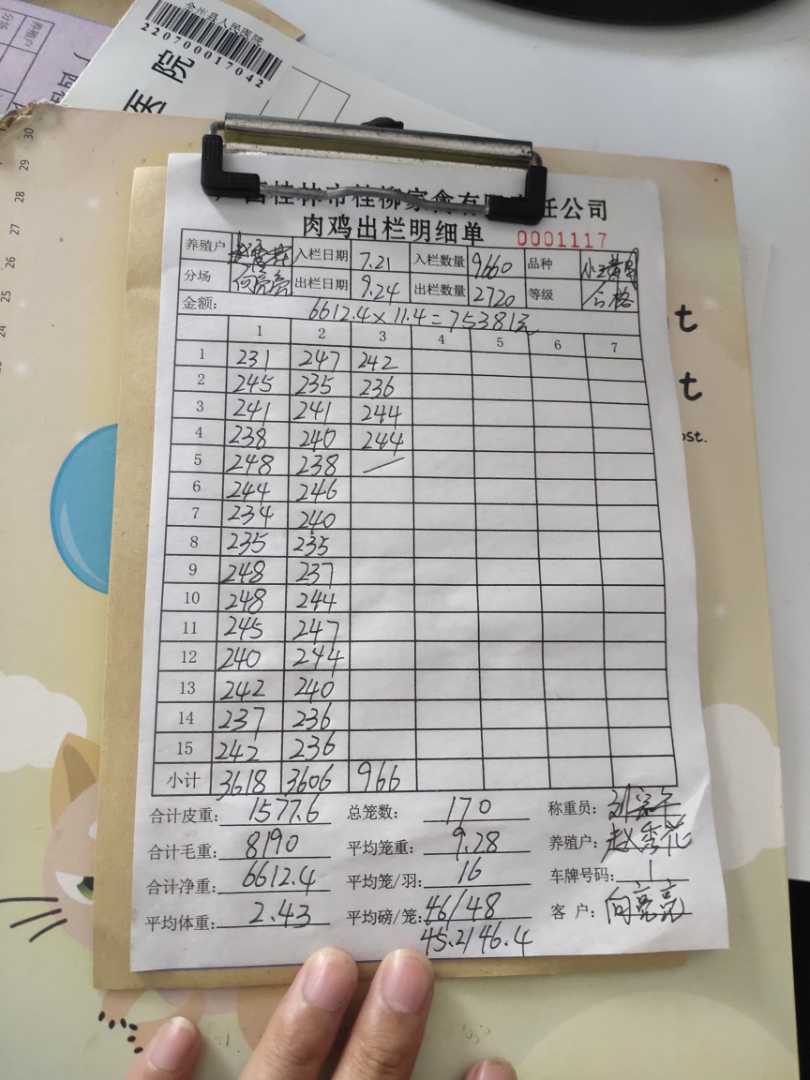 全州县人民医院
220700017042
医院
广西桂林市桂柳家禽有限责任公司
肉鸡出栏明细单 0001117
养殖户 入栏日期 7.21 入栏数量 9660 品种
分场 向亮亮 出栏日期 9.24 出栏数量 2720 等级 合格
金额: 6612.4×11.4=75381元
1 2 3 4 5 6 7
1 231 247 242
2 245 235 236
3 241 241 244
4 238 240 244
5 248 238
6 244 246
7 234 240
8 235 235
9 248 237
10 248 244
11 245 247
12 240 244
13 242 240
14 237 236
15 242 236
小计 3618 3606 966
合计皮重: 1577.6 总笼数: 170 称重员:
合计毛重: 8190 平均笼重: 9.28 养殖户: 赵秀花
合计净重: 6612.4 平均笼/羽: 16 车牌号码: 1
平均体重: 2.43 平均磅/笼: 46/48 客 户: 向亮亮
45.2/46.4
30
29
28
27
26
25
24
t
t
ost.